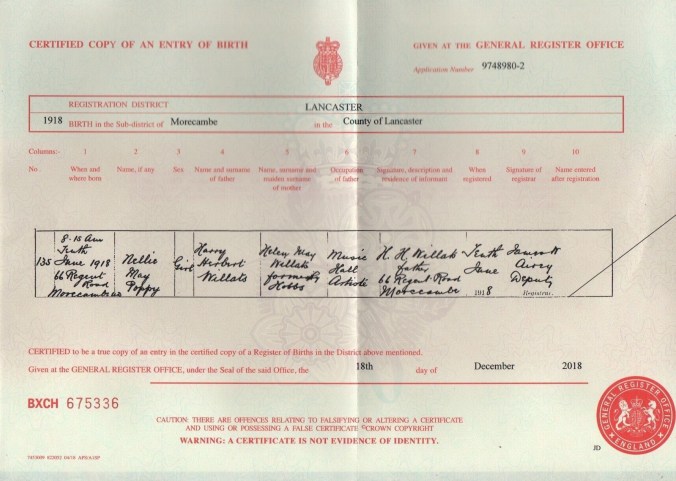 CERTIFIED COPY OF AN ENTRY OF BIRTH
GIVEN AT THE GENERAL REGISTER OFFICE
Application Number 9748980-2
REGISTRATION DISTRICT LANCASTER
1918 BIRTH in the Sub-district of Morecambe in the County of Lancaster
Columns:- 1 2 3 4 5 6 7 8 9 10
No When and where born Name, if any Sex Name and surname of father Name, surname and maiden surname of mother Occupation of father Signature, description and residence of informant When registered Signature of registrar Name entered after registration
135
8-15 am
Tenth
June 1918
66 Regent
Road
Morecambe
Nellie
May
Poppy
Girl
Harry
Herbert
Willats
Helen May
Willats
formerly
Hobbs
Music
Hall
Artiste
H. H. Willats
father
66 Regent Road
Morecambe
Tenth
June
1918
Airey
Deputy
Registrar.
CERTIFIED to be a true copy of an entry in the certified copy of a Register of Births in the District above mentioned.
Given at the GENERAL REGISTER OFFICE, under the Seal of the said Office, the 18th day of December 2018
BXCH 675336
CAUTION: THERE ARE OFFENCES RELATING TO FALSIFYING OR ALTERING A CERTIFICATE
AND USING OR POSSESSING A FALSE CERTIFICATE ©CROWN COPYRIGHT
WARNING: A CERTIFICATE IS NOT EVIDENCE OF IDENTITY.
GENERAL REGISTER OFFICE
ENGLAND
JD